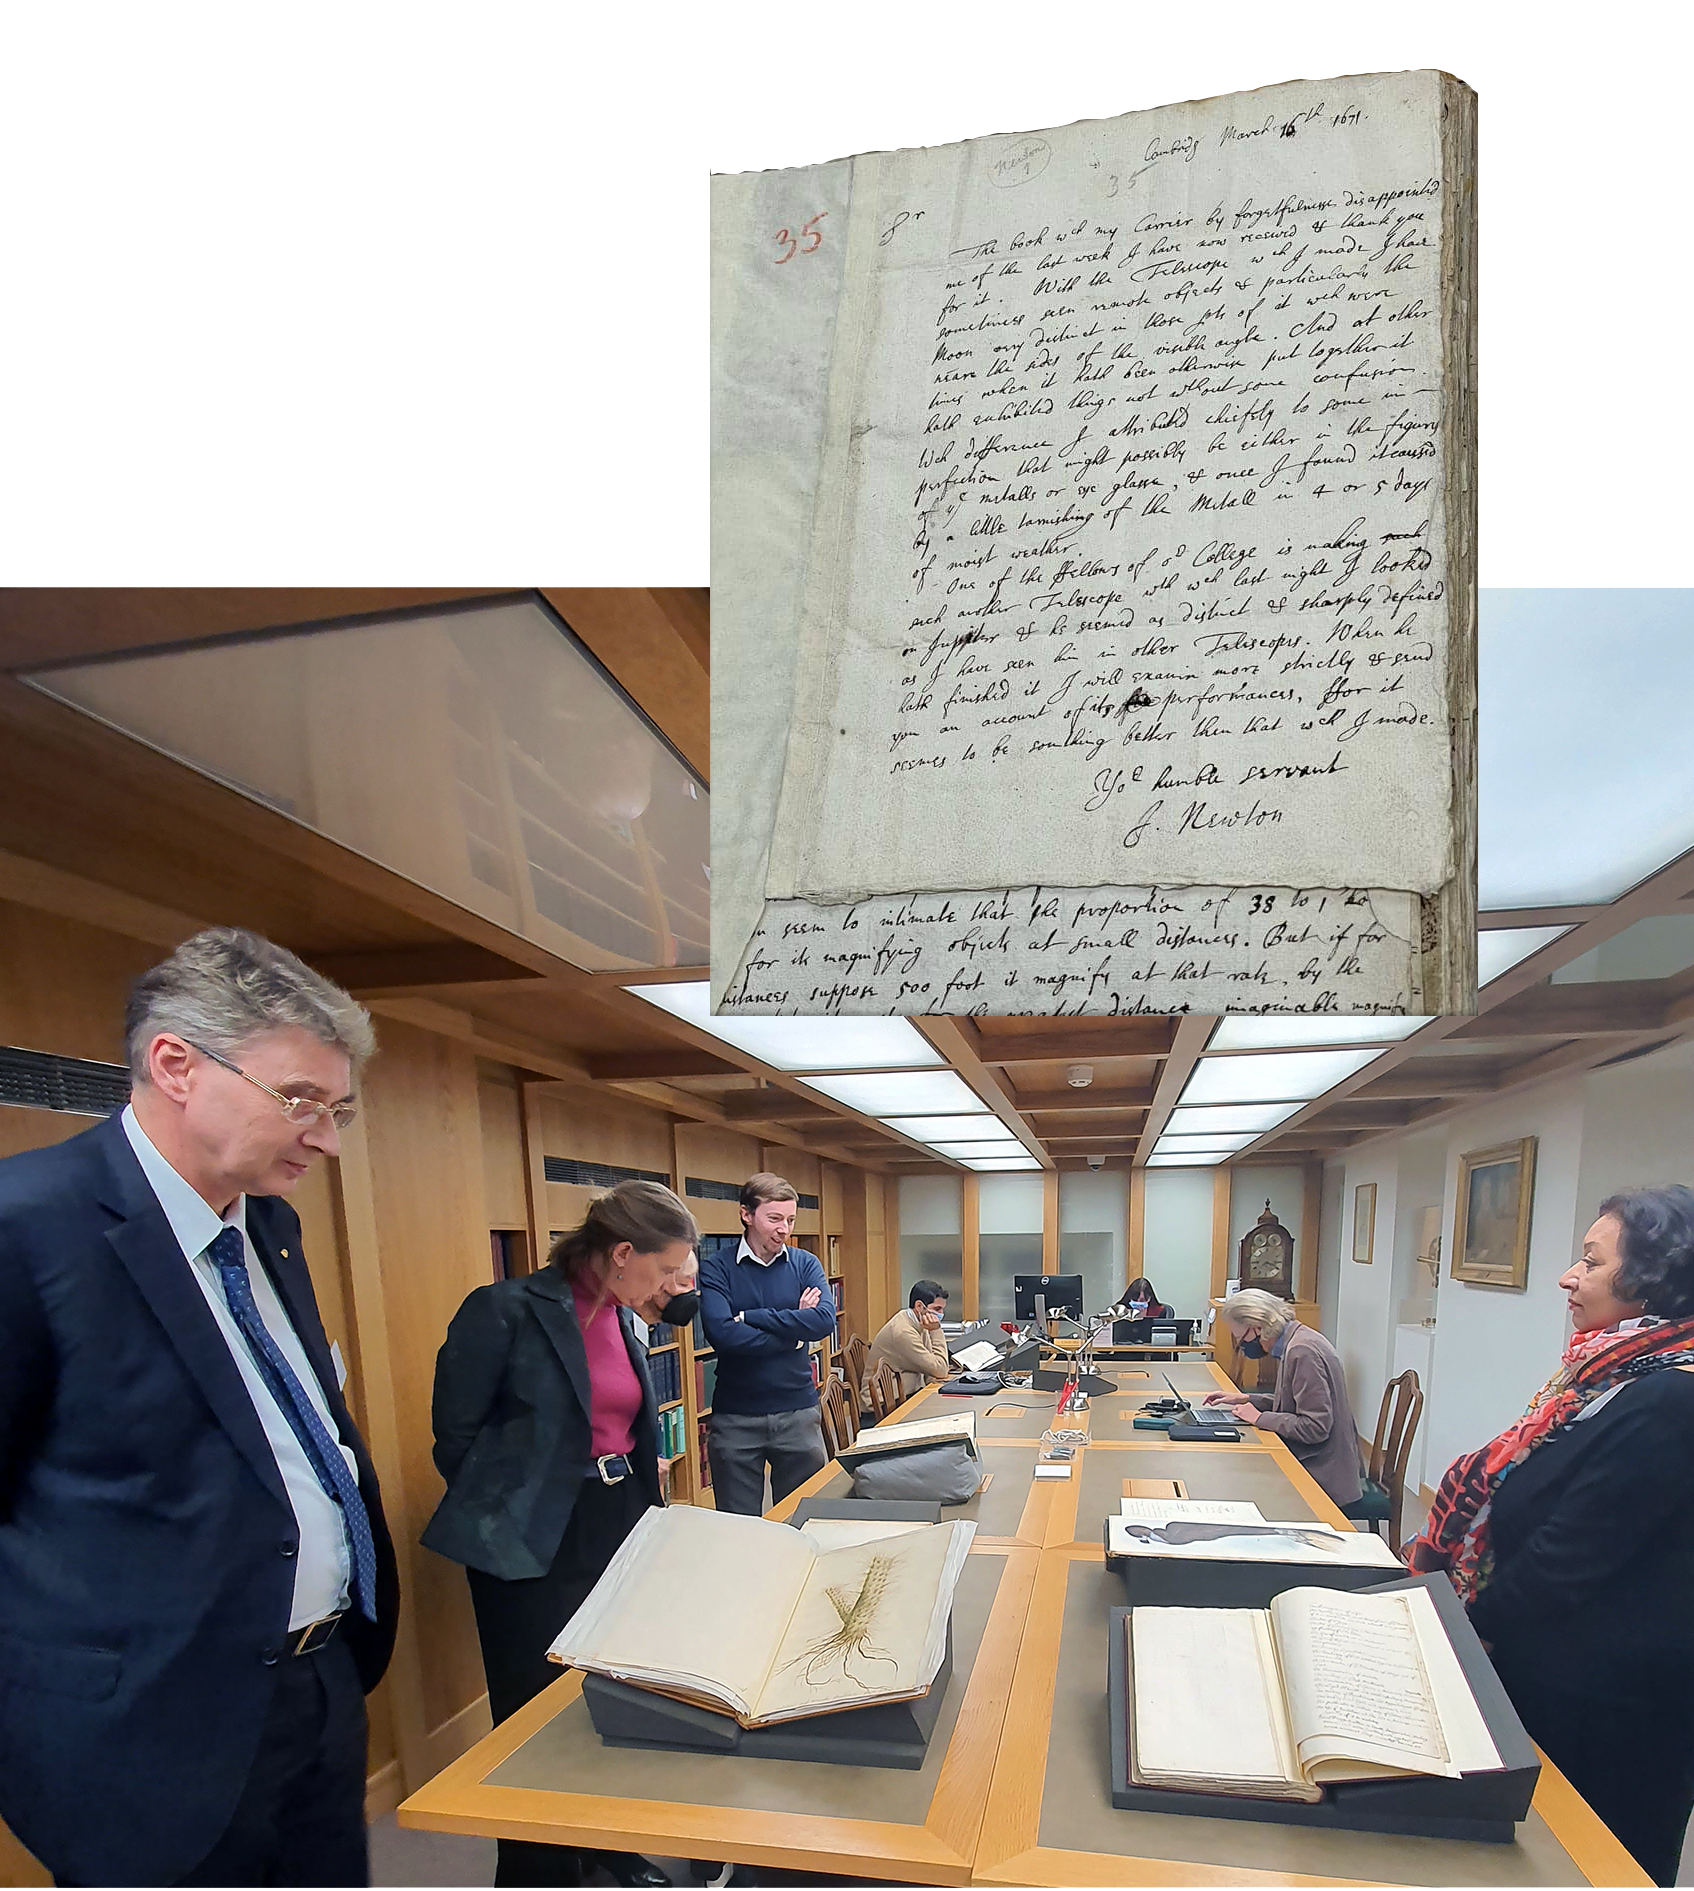 Newton
1
Cambridg March 16th 1671.
35
35
Sr
The book wch my Carrier by forgetfulness disappointed
me of the last week I have now received & thank you
for it. With the Telescope wch I made I have
sometimes seen remote objects & particularly the
Moon very distinct in those pts of it wch were
neare the sides of the visible angle. And at other
times when it hath been otherwise put together it
hath exhibited things not without some confusion.
Wch difference I attributed chiefely to some im-
perfection that might possibly be either in the figures
of ye metalls or eye glasse, & once I found it caused
by a little tarnishing of the Metall in 4 or 5 days
of moist weather.
One of the ffellows of or College is making such
such another Telescope wth wch last night I looked
on Jupiter & he seemed as distinct & sharply defined
as I have seen him in other Telescopes. When he
hath finished it I will examin more strictly & send
you an account of its performances, ffor it
seemes to be somthing better then that wch I made.
Yor humble servant
I. Newton
seem to intimate that the proportion of 38 to 1
for its magnifying objects at small distances. But if for
distances suppose 500 foot it magnify at that rate, by the
distance imaginable magnify